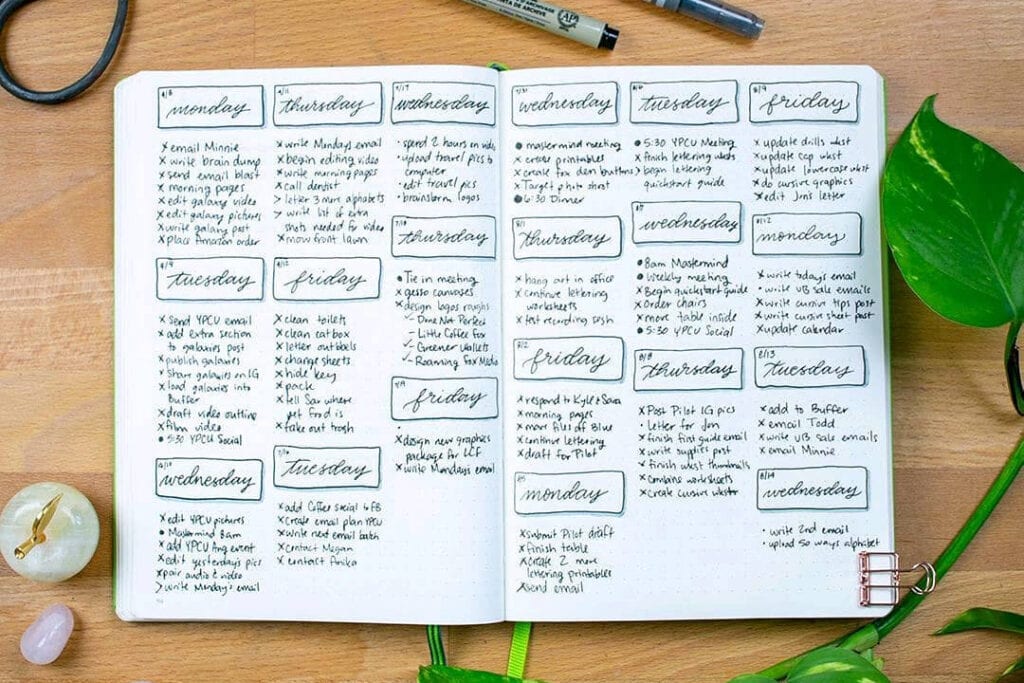 monday
x email Minnie
x write brain dump
x send email blast
x morning pages
x edit galaxy video
x edit galaxy pictures
x write galaxy post
x place Amazon order
4/9
tuesday
x send YPCU email
x add extra section
to galaxies post
x publish galaxies
x share galaxies on IG
x load galaxies into
Buffer
x draft video outline
x film video
• 5:30 YPCU Social
wednesday
x edit YPCU pictures
• Mastermind 8am
x add YPCU Aug event
x edit yesterday's pics
x pair audio & video
> write Monday's email
thursday
x write Monday's email
x begin editing video
x write morning pages
x call dentist
> letter 3 more alphabets
> write list of extra
shots needed for video
x mow front lawn
friday
x clean toilets
x clean catbox
x letter outbbels
x change sheets
x hide key
x pack
x tell Sar where
pet food is
x take out trash
tuesday
x add Coffee social to FB
x create email plan YPCU
x write next email batch
x contact Megan
x contact Anika
7/17
wednesday
• spend 2 hours on video
• upload travel pics to
computer
• edit travel pics
• brainstorm logos
7/18
thursday
• Tie in meeting
x gesso canvases
x design logos roughs
✓ - Done Not Perfect
- Little Coffee Fox
✓ - Greener Wallets
✓ - Roaming Fox Media
friday
x design new graphics
package for LCF
x write Monday's email
7/31
wednesday
• mastermind meeting
x create printables
x create fox den buttons
x Target photo shoot
• 6:30 Dinner
8/1
thursday
x hang art in office
x continue lettering
worksheets
x test recording sesh
8/2
friday
x respond to Kyle & Sara
x morning pages
x move files off Blue
x continue lettering
x draft for Pilot
8/5
monday
x submit Pilot draft
x finish table
x create 2 more
lettering printables
x send email
8/6
tuesday
• 5:30 YPCU Meeting
x finish lettering wksts
> begin lettering
quickstart guide
8/7
wednesday
• 8am Mastermind
• Weekly meeting
x Begin quickstart guide
x Order chairs
x move table inside
• 5:30 YPCU Social
8/8
thursday
x Post Pilot IG pics
• letter for Jon
x finish first guide email
x write supplies post
x finish wkst thumbnails
x combine worksheets
x create cursive wkst
8/9
friday
x update drills wkst
x update cap wkst
x update lowercase wkst
x do cursive graphics
x edit Jon's letter
8/12
monday
x write today's email
x write VB sale emails
x write cursive tips post
x write cursive sheet post
x update calendar
8/13
tuesday
x add to Buffer
x email Todd
x write VB sale emails
x email Minnie
8/14
wednesday
• write 2nd email
• upload 50 ways alphabet